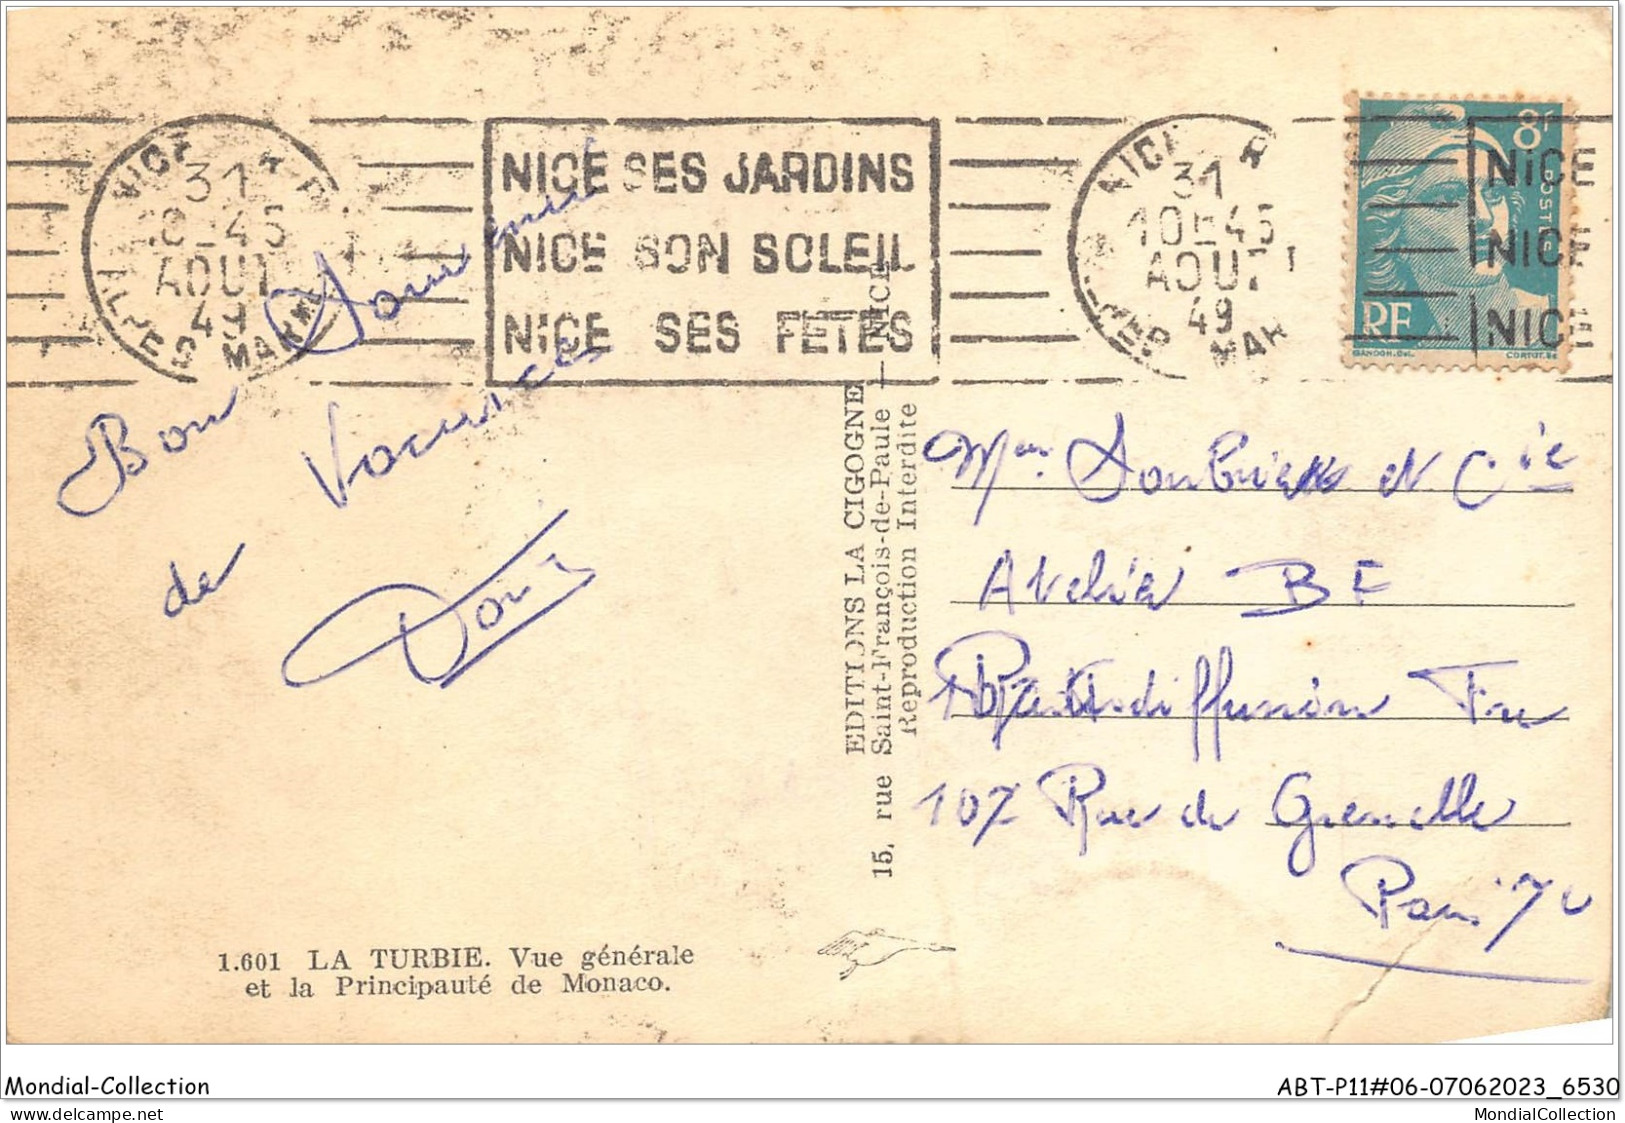 NICE R.P.
31
18 H 45
AOUT
49
ALPES MARMES
NICE SES JARDINS
NICE SON SOLEIL
NICE SES FETES
NICE R
31
18 H 45
AOUT
49
ALPES MAR
8F
POSTES
RF
GANDON. Del.
CORTOT. Sc
NICE
NICE
NICE
Bon
Vacances
de
EDITIONS LA CIGOGNE
15, rue Saint-François-de-Paule — NICE
Reproduction Interdite
et Cie
Atelier BF
107 Rue de Grenelle
Paris 7e
1.601 LA TURBIE. Vue générale
et la Principauté de Monaco.
Mondial-Collection
ABT-P11#06-07062023_6530
delcampe.net
MondialCollection